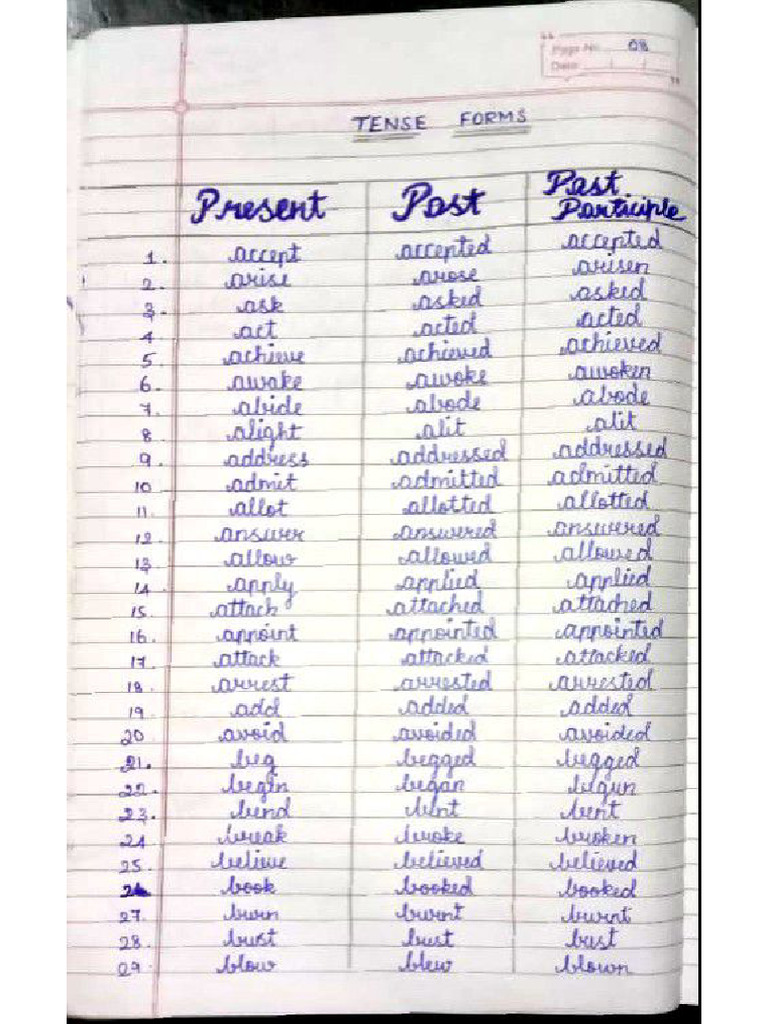 Page No. 08
Date / /
TENSE FORMS
Present Past Past Participle
1. accept accepted accepted
2. arise arose arisen
3. ask asked asked
4. act acted acted
5. achieve achieved achieved
6. awake awoke awoken
7. abide abode abode
8 alight alit alit
9. address addressed addressed
10 admit admitted admitted
11. allot allotted allotted
12. answer answered answered
13. allow allowed allowed
14 apply applied applied
15. attach attached attached
16. appoint appointed appointed
17. attack attacked attacked
18. arrest arrested arrested
19. add added added
20 avoid avoided avoided
21. beg begged begged
22. begin began begun
23. bend bent bent
24 break broke broken
25. believe believed believed
26 book booked booked
27. burn burnt burnt
28. bust bust bust
29. blow blew blown